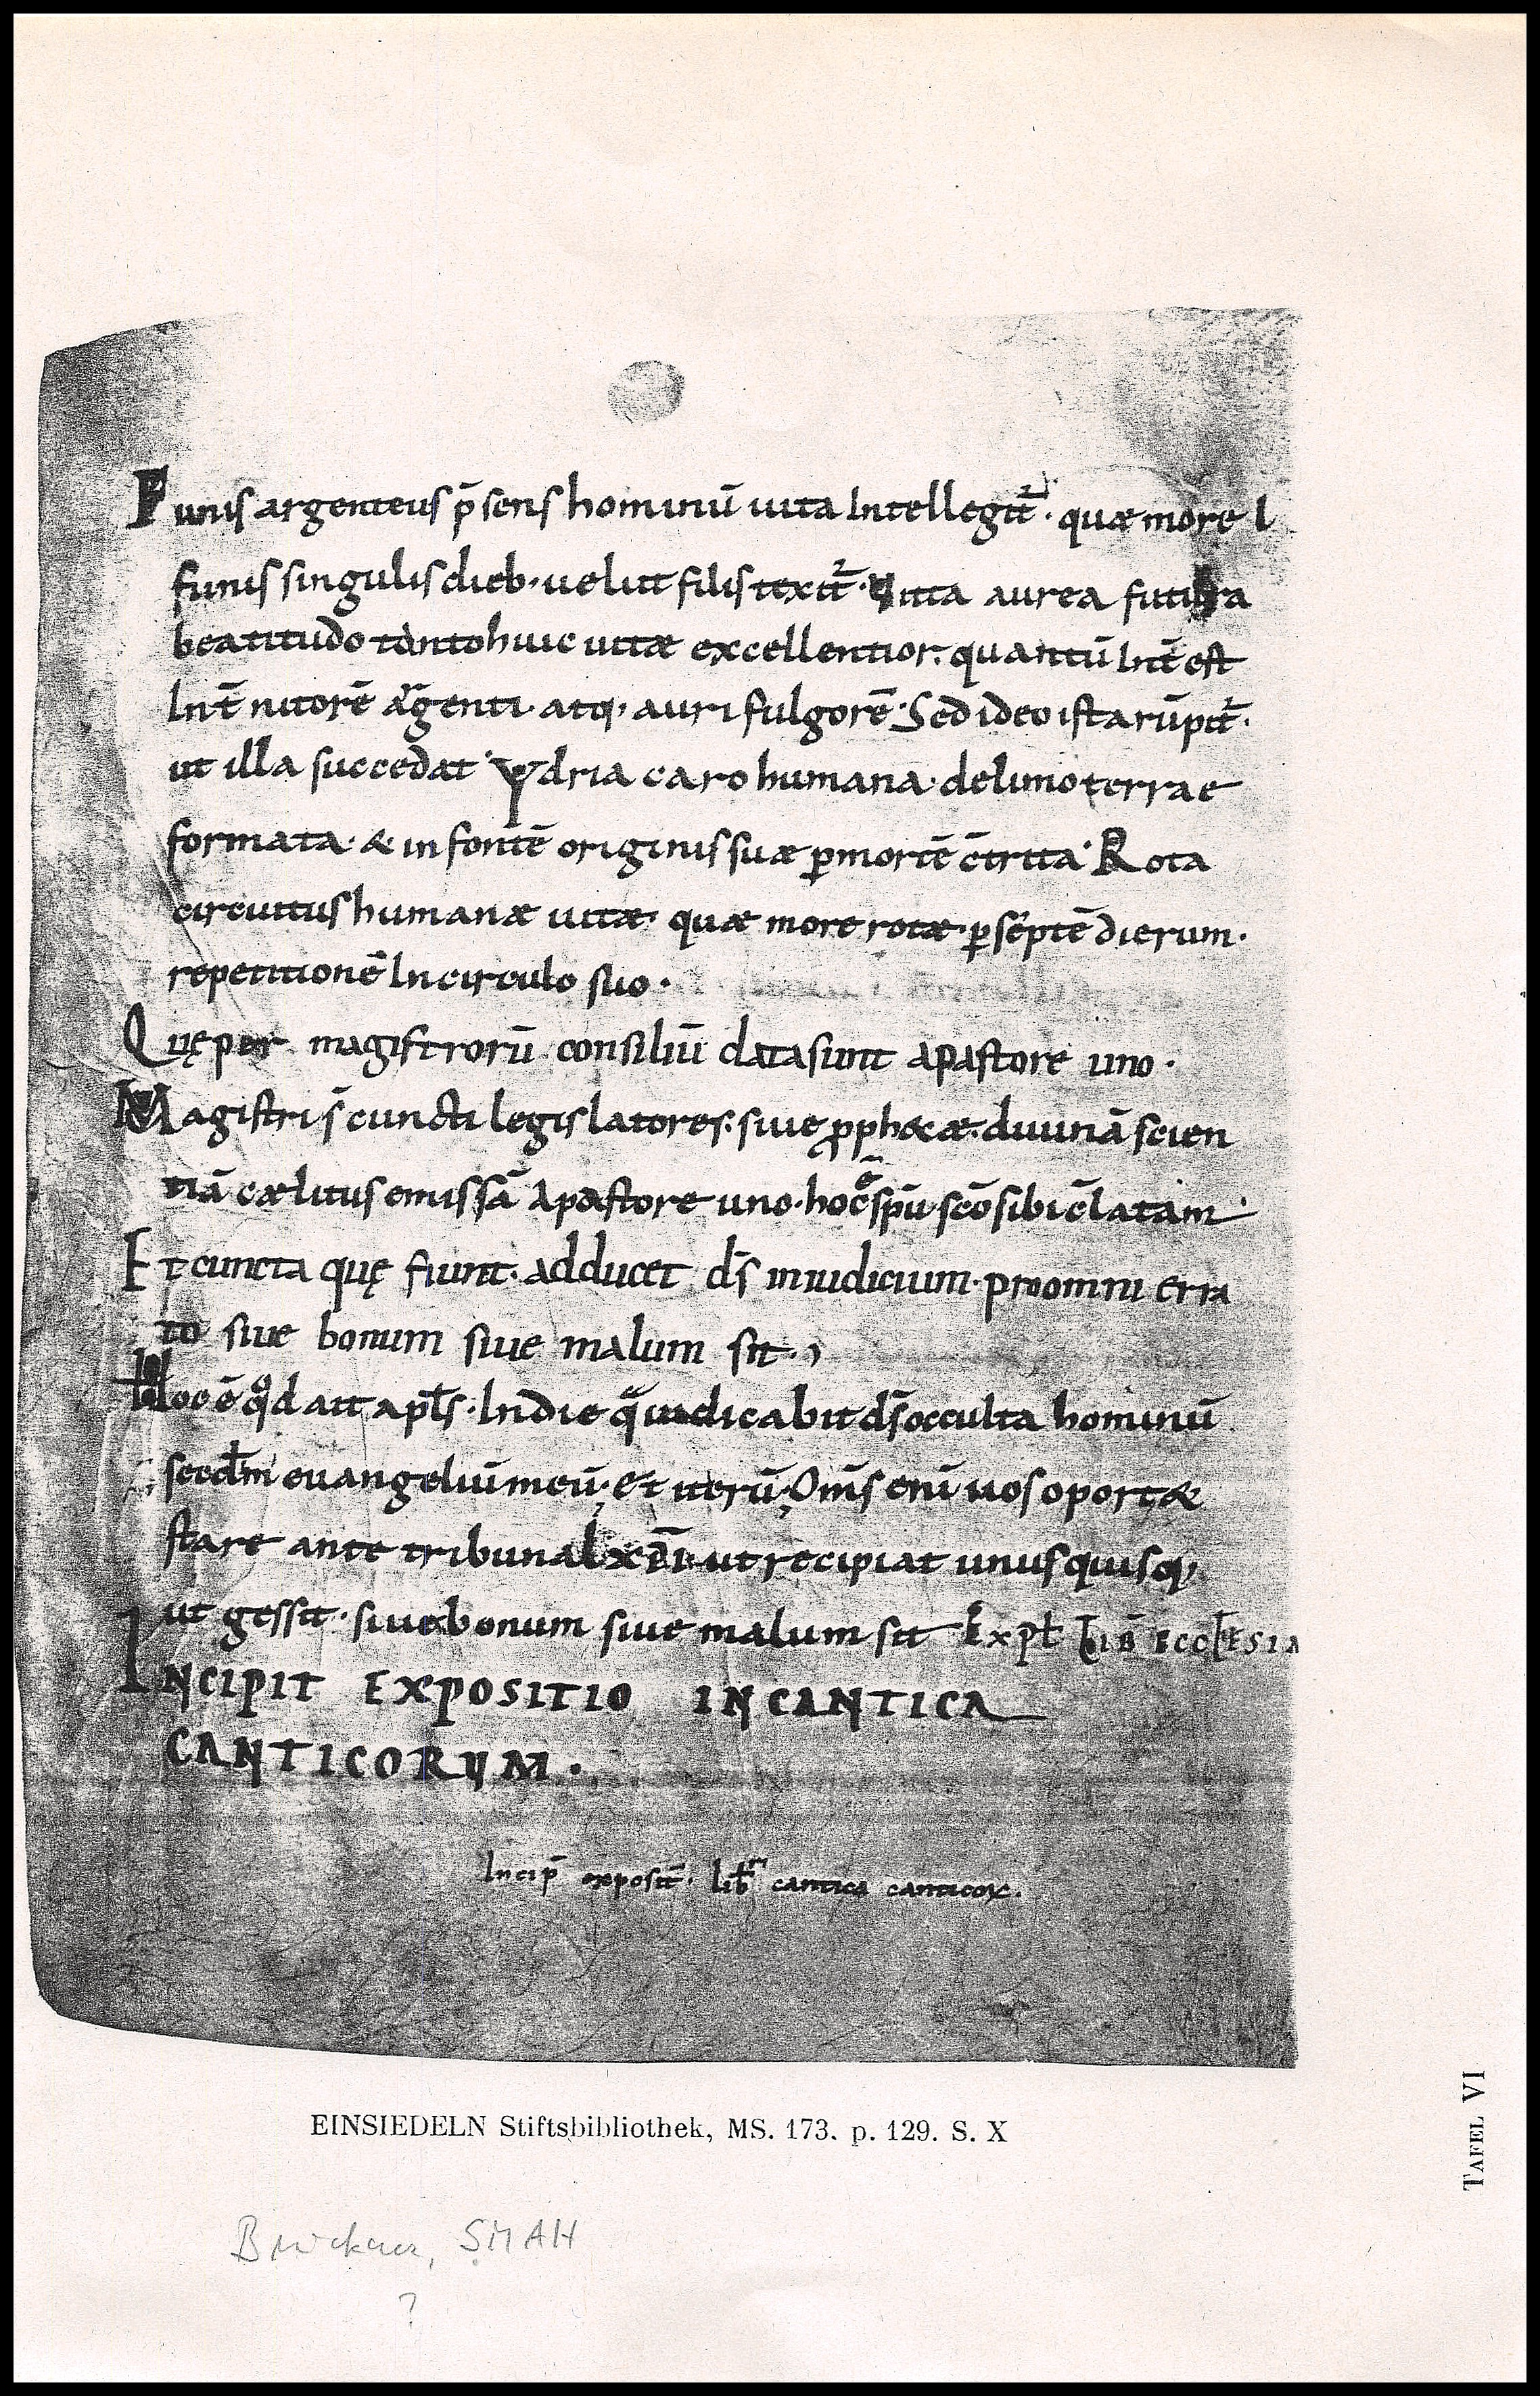 Funis argenteus p̄sens hominū uita Intellegit̄². quæ more l
funis singulis dieb· uelut filis texit̄². Vitta aurea futura
beatitudo tanto huic uitæ excellentior. quantū Int̄ est
Int̄ nitorē argenti. atq; auri fulgorē. Sed ideo ista rūpit̄².
ut illa succedat. ydria caro humana. de limo terrae
formata. & in fontē originis suæ ꝑ mortē c̄trita. Rota
circuitus humanæ uitæ. quæ more rotæ ꝑ septē dierum.
repetitionē In circulo suo.
Quę per magistrorū consiliū data sunt a pastore uno.
Magistri s̄ cuncti legislatores. siue ꝓphetæ. diuinā scien
tiā cælitus emissā A pastore uno. hoc ē sp̄u sc̄o sibi c̄latam.
Et cuncta quę fiunt. adducet d̄s in iudicium. pro omni erra
to siue bonum siue malum sit.,
Hoc ē qd ait apl̄s. In die qua iudicabit d̄s occulta hominū
secdm euangeliū meū; Et iterū; Om̄s enī uos oport&
stare ante tribunal xp̄i ut recipiat unusquisq;
ut gessit. siue bonum siue malum sit Expł LIB̄ ECCLESIA
INCIPIT EXPOSITIO IN CANTICA
CANTICORUM.
Incip̄ exposit̄. lib̄ cantica canticoꝝ.
EINSIEDELN Stiftsbibliothek, MS. 173. p. 129. S. X
TAFEL VI
Bruckner, SMAH
?